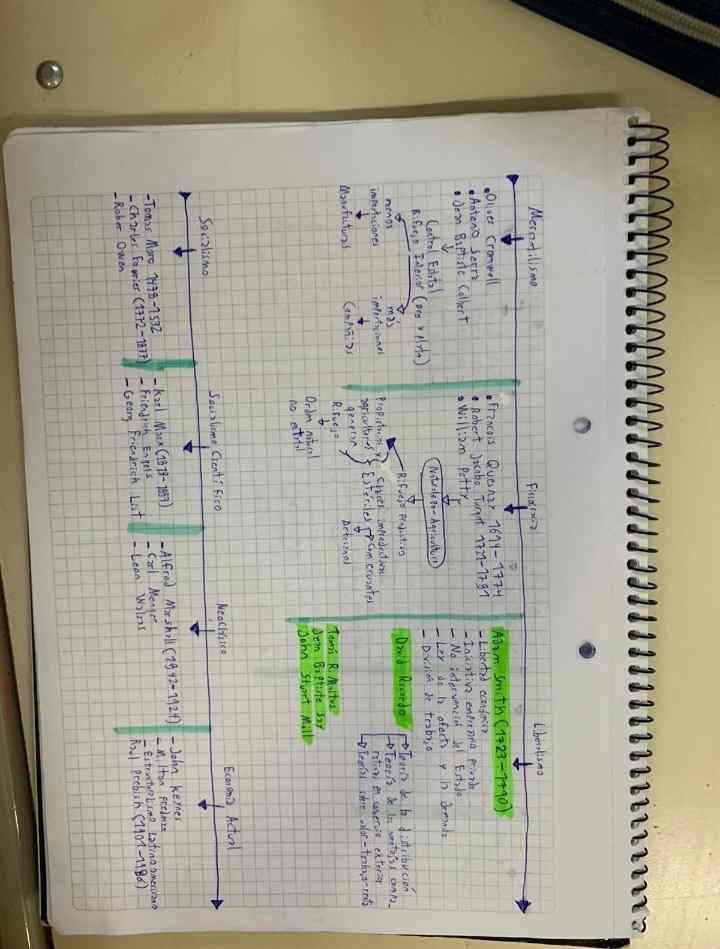 Mercantilismo
• Oliver Cromwell
• Antonio Serra
• Jean Baptiste Colbert
Control Estatal
Riqueza Interior (oro y plata)
menos
importaciones
Manufacturas
más
importaciones
Compañías
Fisiocracia
• Francois Quesnay 1694-1774
• Robert Jacobo Turgot 1721-1791
• William Petty
Naturaleza-Agricultura
Riqueza productiva
Propietarios y
agricultores
generan
Riqueza
Clases improductivas
Estériles
Comerciantes
Artesanos
Orden natural
no estatal
Liberalismo
Adam Smith (1723-1790)
- Libertad económica
- Iniciativa empresarial privada
- No intervención del Estado
- Ley de la oferta y la demanda
- División de trabajo
David Ricardo
Teoría de la distribución
Teoría de las ventajas compa-
rativas en comercio exterior
Teorías sobre valor-trabajo-renta
Tomás R. Maltus
Jean Baptiste Say
John Stuart Mill
Socialismo
- Tomas Moro 1478-1532
- Charles Fourier (1772-1837)
- Rober Owen
Socialismo Científico
- Karl Marx (1818-1883)
- Friendrich Engels
- Georg Friendrich List
Neoclásico
- Alfred Marshall (1842-1924)
- Carl Menger
- Leon Walras
Economía Actual
- John Keines
- Milton Fredman
- Estructuralismo Latinoamericano
Raúl Prebish (1901-1986)